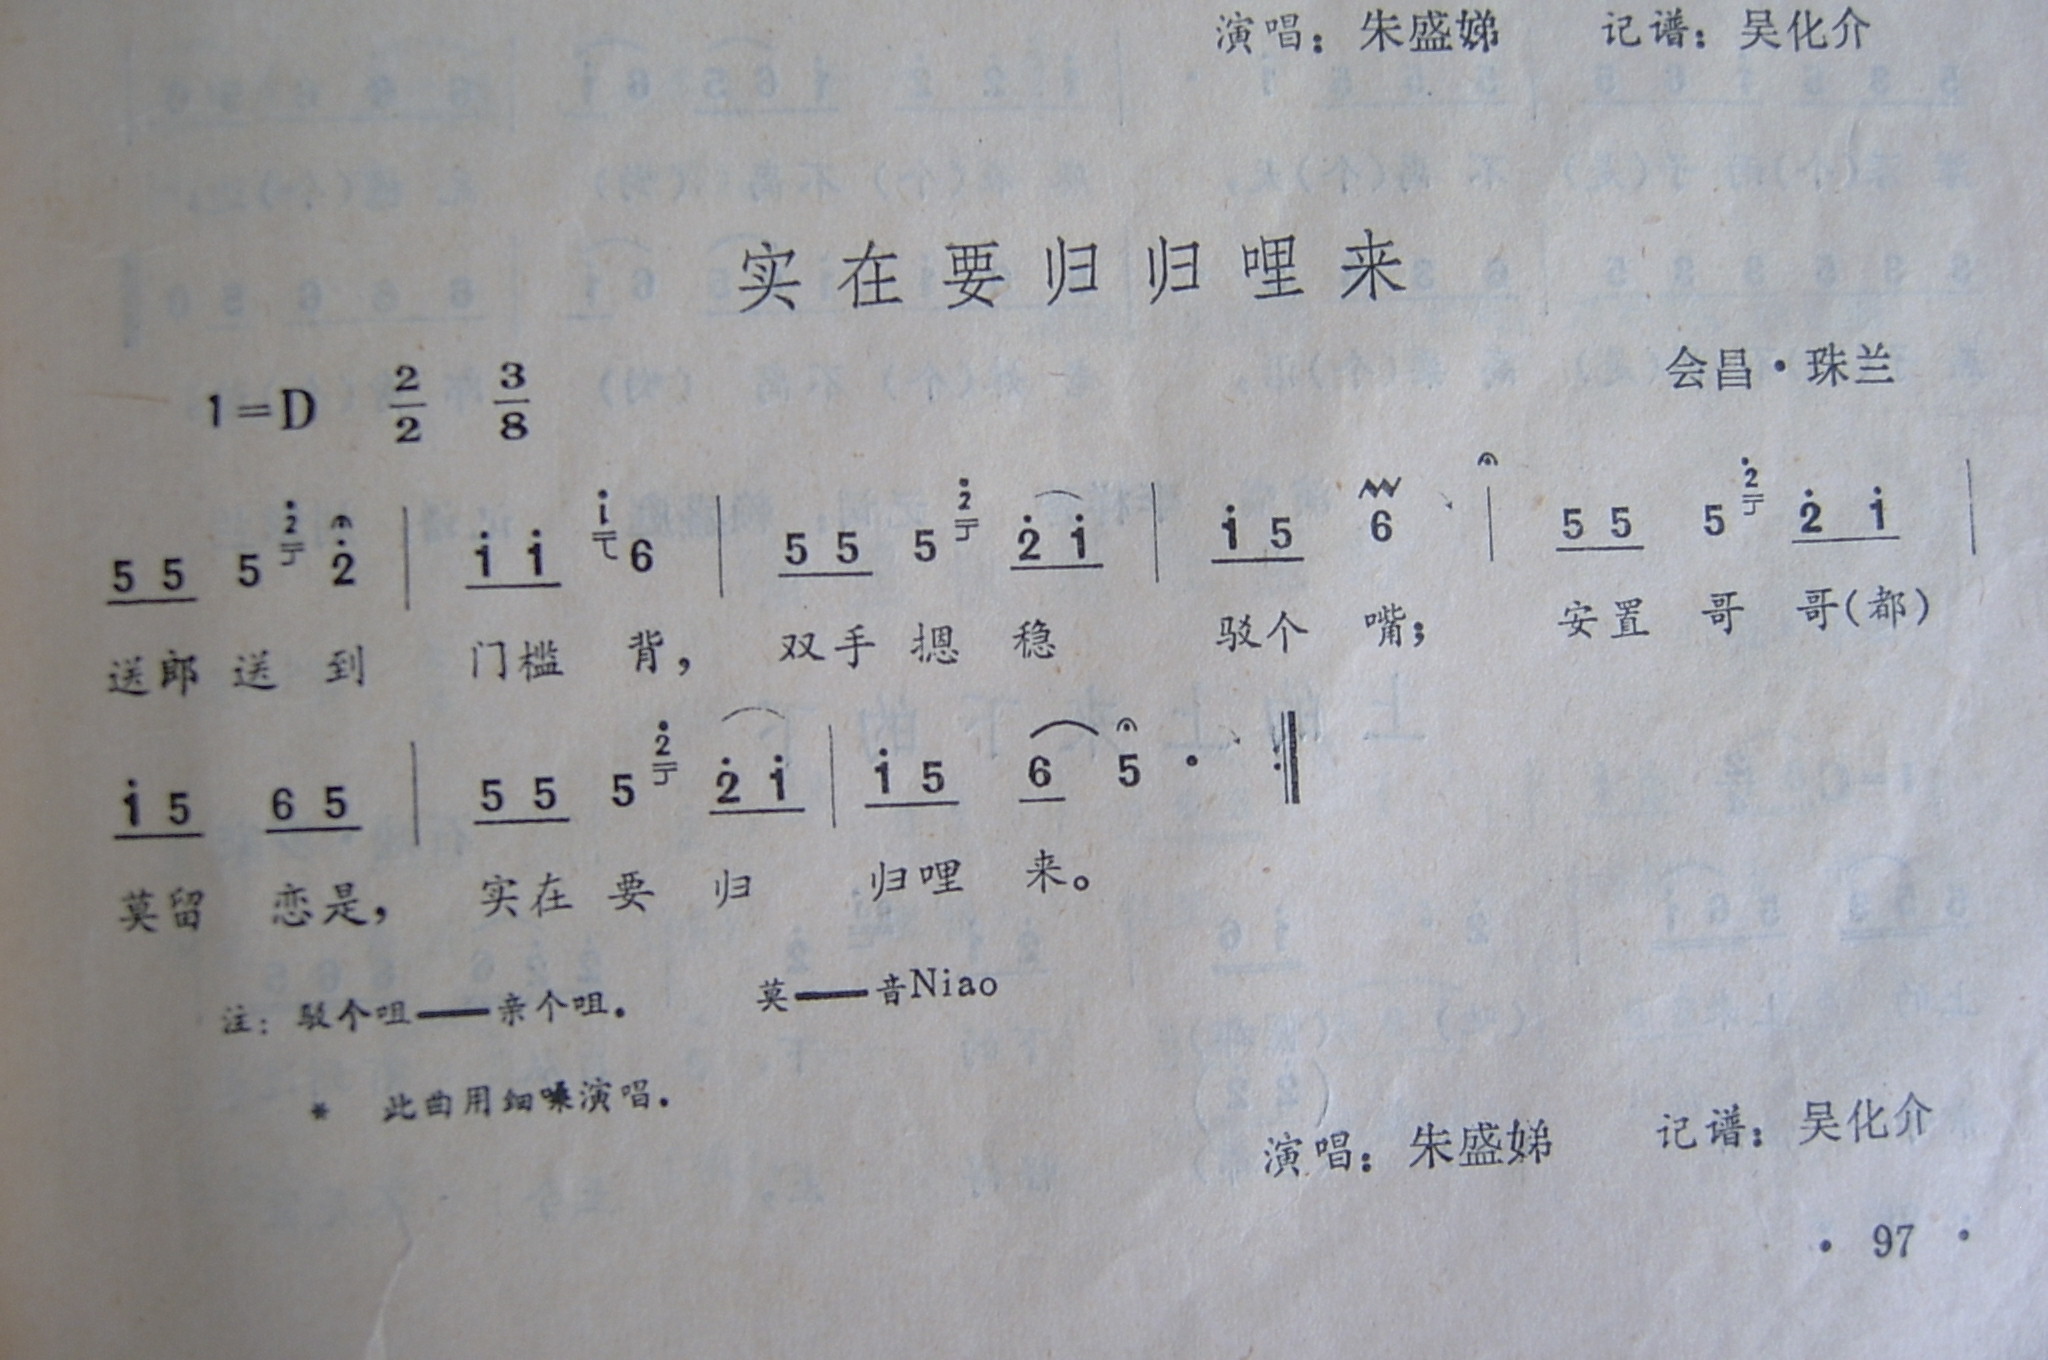 演唱：朱盛娣 记谱：吴化介
实在要归归哩来
会昌·珠兰
1=D 2/2 3/8
5 5 5 2̇ 2̇ | i i i 6 | 5 5 5 2̇ 2̇ i | i 5 6 | 5 5 5 2̇ 2̇ i |
送郎 送 到 门槛 背， 双手 摁 稳 驳个 嘴； 安置 哥 哥（都）
i 5 6 5 | 5 5 5 2̇ 2̇ i | i 5 6 5 · :‖
莫留 恋是， 实在 要 归 归哩 来。
注：驳个咀——亲个咀． 莫——音Niao
* 此曲用细嗓演唱．
演唱：朱盛娣 记谱：吴化介
· 97 ·